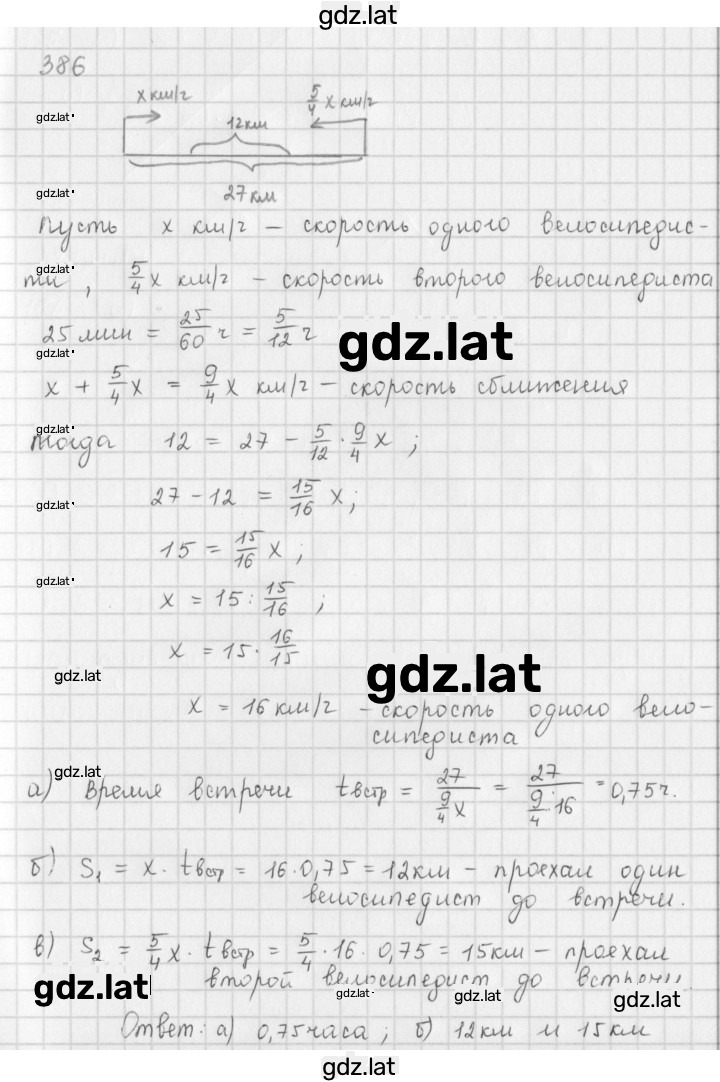 gdz.lat
386
x км/г
5/4 x км/г
gdz.lat
12км
gdz.lat
27 км
Пусть x км/г – скорость одного велосипедис-
gdz.lat
ти, 5/4 x км/г – скорость второго велосипедиста
25 мин = 25/60 г = 5/12 г
gdz.lat
gdz.lat
x + 5/4 x = 9/4 x км/г – скорость сближения
gdz.lat
тогда 12 = 27 - 5/12 · 9/4 x ;
27 - 12 = 15/16 x;
gdz.lat
15 = 15/16 x ;
gdz.lat
x = 15 : 15/16 ;
x = 15 · 16/15
gdz.lat
gdz.lat
x = 16 км/г – скорость одного вело-
сипедиста
gdz.lat
а) Время встречи tвстр = 27/(9/4 x) = 27/(9/4 · 16) = 0,75г.
б) S₁ = x · tвстр = 16 · 0,75 = 12км – проехал один
велосипедист до встречи.
в) S₂ = 5/4 x · tвстр = 5/4 · 16 · 0,75 = 15км – проехал
второй велосипедист до встречи.
gdz.lat
gdz.lat
gdz.lat
gdz.lat
Ответ: а) 0,75часа ; б) 12км и 15км
gdz.lat